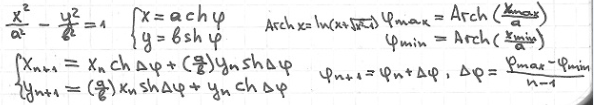 x²/a² - y²/b² = 1 { x = a ch φ
y = b sh φ
Arch x = ln(x+√x²-1) φmax = Arch (xmax/a)
φmin = Arch (xmin/a)
{ xn+1 = xn ch Δφ + (a/b) yn sh Δφ
yn+1 = (a/b) xn sh Δφ + yn ch Δφ
φn+1 = φn + Δφ, Δφ = (φmax - φmin)/(n-1)